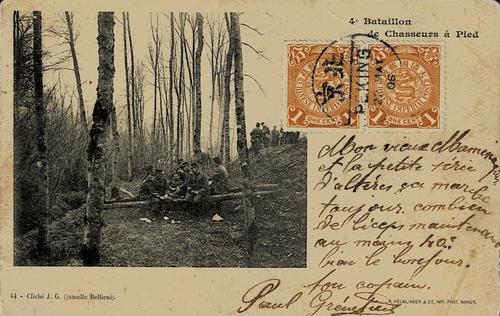 4e Bataillon
de Chasseurs à Pied
CHINESE IMPERIAL POST
1 ONE CENT 1
CHINESE IMPERIAL POST
1 ONE CENT 1
PEKING
Mon vieux
et la petite série
d'altères, ça marche
toujours. combien
de biceps maintenant
au moins 40?
bon le bonjour.
ton copain.
Paul
44 - Cliché J. G. (jumelle Bellieni).
P. HELMLINGER & Co, IMP. PHOT. NANCY.